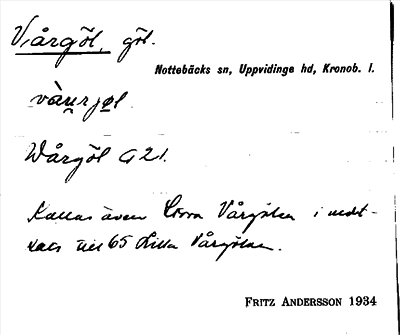 Vårgöl, göl.
Nottebäcks sn, Uppvidinge hd, Kronob. l.
vàu̯rjøl
Wårgöl G 21.
Kallas även Stora Vårgölen i mot-
sats till 65 Lilla Vårgölen.
FRITZ ANDERSSON 1934